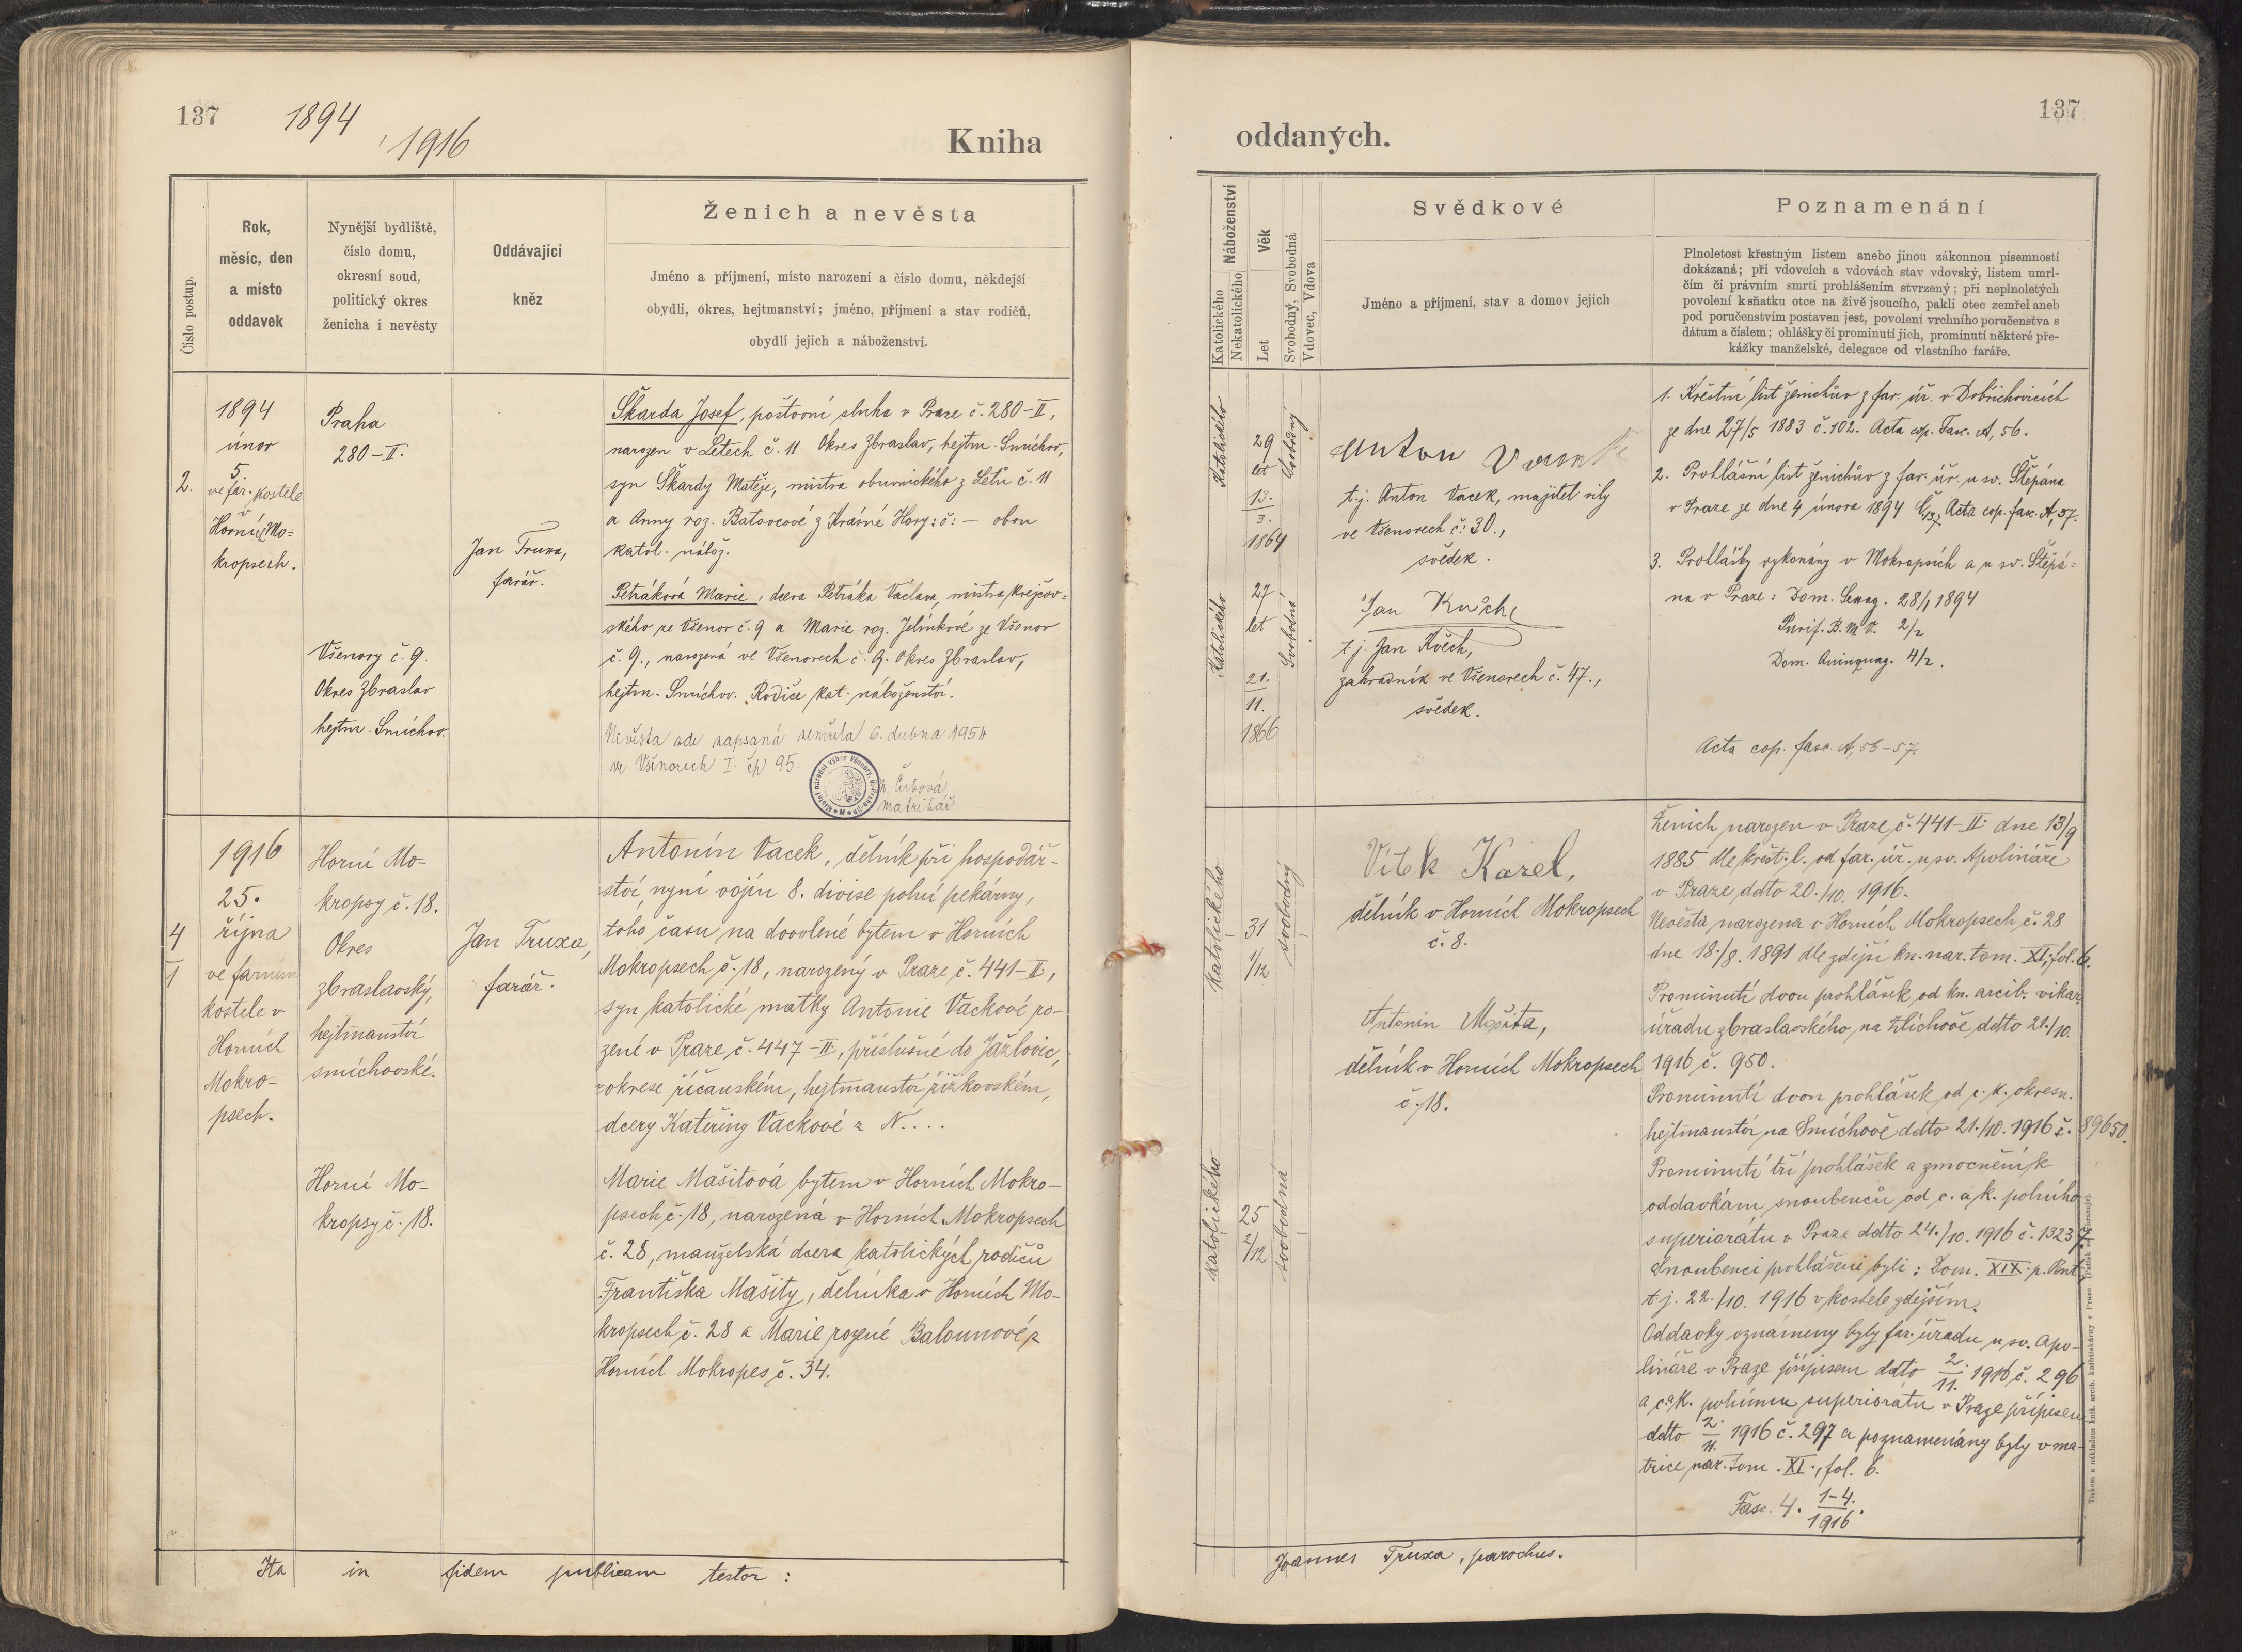 137
1894
1916
Kniha
Číslo postup.
Rok,
měsíc, den
a místo
oddavek
Nynější bydliště,
číslo domu,
okresní soud,
politický okres
ženicha i nevěsty
Oddávající
kněz
Ženich a nevěsta
Jméno a příjmení, místo narození a číslo domu, někdejší
obydlí, okres, hejtmanství; jméno, příjmení a stav rodičů,
obydlí jejich a náboženství.
2.
1894
únor
5.
ve far. kostele
v
Horních Mo=
kropsech.
Praha
280-II.
Všenory č. 9.
Okres Zbraslav
hejtm. Smíchov.
Jan Truxa,
farář.
Škarda Josef, poštovní sluha v Praze č. 280-II,
narozen v Letech č. 11 Okres Zbraslav, hejtm. Smíchov,
syn Škardy Matěje, mistra obuvnického z Letů č. 11
a Anny roz. Batovcové z Krásné Hory: č: — obou
katol. nábož.
Petráková Marie, dcera Petráka Václava, mistra krejčov=
ského ze Všenor č. 9 a Marie roz. Jelínkové ze Všenor
č. 9., narozená ve Všenorech č. 9. Okres Zbraslav,
hejtm. Smíchov. Rodiče kat. náboženství.
Nevěsta zde zapsaná zemřela 6. dubna 1954
ve Všenorech I. čp 95.
Místní národní výbor Všenory, o. Praha-jih
matrikář
4
1
1916
25.
října
ve farním
kostele v
Horních
Mokro-
psech.
Horní Mo-
kropsy č. 18.
Okres
zbraslavský,
hejtmanství
smíchovské.
Horní Mo-
kropsy č. 18.
Jan Truxa,
farář.
Antonín Vacek, dělník při hospodář-
ství, nyní vojín 8. divise polní pekárny,
toho času na dovolené bytem v Horních
Mokropsech č. 18, narozený v Praze č. 441-II,
syn katolické matky Antonie Vackové ro-
zené v Praze č. 447-II, příslušné do Jažlovic,
okrese říčanském, hejtmanství žižkovském,
dcery Kateřiny Vackové z N....
Marie Mašitová bytem v Horních Mokro-
psech č. 18, narozená v Horních Mokropsech
č. 28, manželská dcera katolických rodičů
Františka Mašity, dělníka v Horních Mo-
kropsech č. 28 a Marie rozené Balounové z
Horních Mokropes č. 34.
Ita in fidem publicam testor:
137
oddaných.
Náboženství
Katolického
Nekatolického
Věk
Let
Svobodný, Svobodná
Vdovec, Vdova
Svědkové
Jméno a příjmení, stav a domov jejich
Poznamenání
Plnoletost křestným listem anebo jinou zákonnou písemností
dokázaná; při vdovcích a vdovách stav vdovský, listem umrl-
čím či právním smrti prohlášením stvrzený; při neplnoletých
povolení k sňatku otce na živě jsoucího, pakli otec zemřel aneb
pod poručenstvím postaven jest, povolení vrchního poručenstva s
dátum a číslem; ohlášky či prominutí jich, prominutí některé pře-
kážky manželské, delegace od vlastního faráře.
Katolického
29
let
13.
3.
1864
svobodný
Anton
t.j. Anton Vacek, majitel vily
ve Všenorech č: 30.,
svědek.
Katolického
27
let
21.
11.
1866
Svobodná
Jan
t.j. Jan Kvěch,
zahradník ve Všenorech č. 47.,
svědek.
1. Křestní list ženichův z far. úř. v Dobřichovicích
ze dne 27/5 1883 č. 102. Acta cop. Fasc. A, 56.
2. Prohlášní list ženichův z far. úř. u sv. Štěpána
v Praze ze dne 4 února 1894 Acta cop. fasc. A, 57.
3. Prohlášky vykonány v Mokropsích a u sv. Štěpá=
na v Praze: Dom. Sexag. 28/1 1894
Purif. B. M. V. 2/2
Dom. Quinquag. 4/2.
Acta cop. fasc. A, 56-57.
katolického
31
1/12
svobodný
Vítek Karel,
dělník v Horních Mokropsech
č. 8.
Antonín Mašita,
dělník v Horních Mokropsech
č. 18.
katolického
25
2/12
svobodná
Ženich narozen v Praze č. 441-II. dne 13/9
1885 dle křest. l. od far. úř. u sv. Apolináře
v Praze ddto 20./10. 1916.
Nevěsta narozena v Horních Mokropsech č. 28
dne 18./8. 1891 dle zdejší kn. nar. tom. XI, fol. 6.
Prominutí dvou prohlášek od kn. arcib. vikar.
úřadu zbraslavského na Zlíchově ddto 21./10.
1916 č. 950.
Prominutí dvou prohlášek od c. k. okresn.
hejtmanství na Smíchově ddto 21./10. 1916 č. 89650.
Prominutí tří prohlášek a zmocnění k
oddavkám snoubenců od c. a k. polního
superiorátu v Praze ddto 24./10. 1916 č. 13237.
Snoubenci prohlášeni byli: Dom. XIX. p. Pent.
t. j. 22./10. 1916 v kostele zdejším.
Oddavky oznámeny byly far. úřadu u sv. Apo-
lináře v Praze přípisem ddto 2./11. 1916 č. 296
a c. a k. polnímu superiorátu v Praze přípisem
ddto 2./11. 1916 č. 297 a poznamenány byly v ma-
trice nar. tom. XI., fol. 6.
Fasc. 4. 1-4./1916.
Joannes Truxa, parochus.
Tiskem a nákladem kníž. arcib. knihtiskárny v Praze.